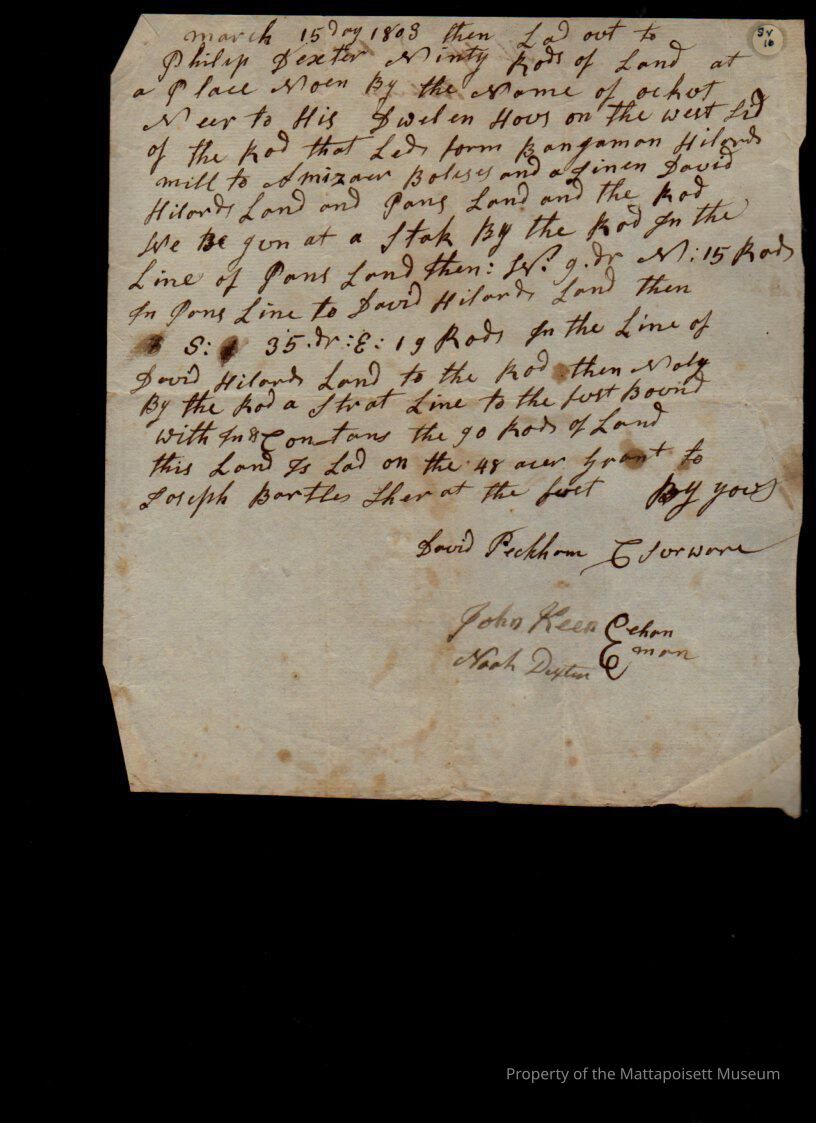 march 15 Day 1803 then Lad out to
Sv
16
Philip Dexter Ninty Rods of Land at
a Place Noen By the Name of ochot
Neer to His Dwelen Hous on the west Sid
of the Rod that Leds form Bangaman Hilards
mill to Amizaer Bolses and a Jinen David
Hilards Land and Pans Land and the Rod
We Be gun at a Stak By the Rod In the
Line of Pans Land then: W. 9. dr N: 15 Rods
In Pans Line to David Hilards Land then
S: 35. dr: E: 19 Rods In the Line of
David Hilards Land to the Rod then
By the Rod a Strat Line to the furst Bound
with In Contans the 90 Rods of Land
this Land Is Lad on the 48 acer Grant to
Joseph Bartles Sher at the furst By yous
David Peckham Surware
John Keen Chan
Noah Dexter man
Property of the Mattapoisett Museum